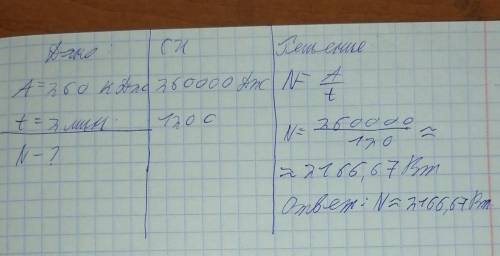 Дано:
A = 260 кДж
t = 2 мин.
N - ?
СИ
260000 Дж
120 с
Решение
N = A/t
N = 260000/120 ≈
≈ 2166,67 Вт
Ответ: N ≈ 2166,67 Вт